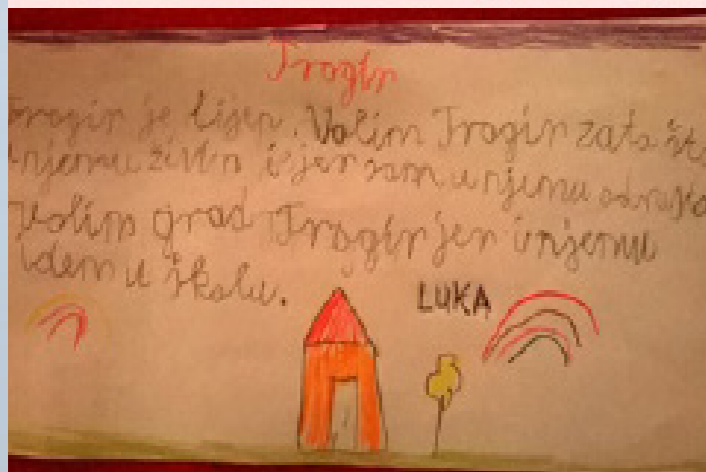 Trogir
Trogir je lijep. Volim Trogir zato što
u njemu živim i jer sam u njemu odrastao
Volim grad Trogir jer u njemu
idem u školu.
LUKA